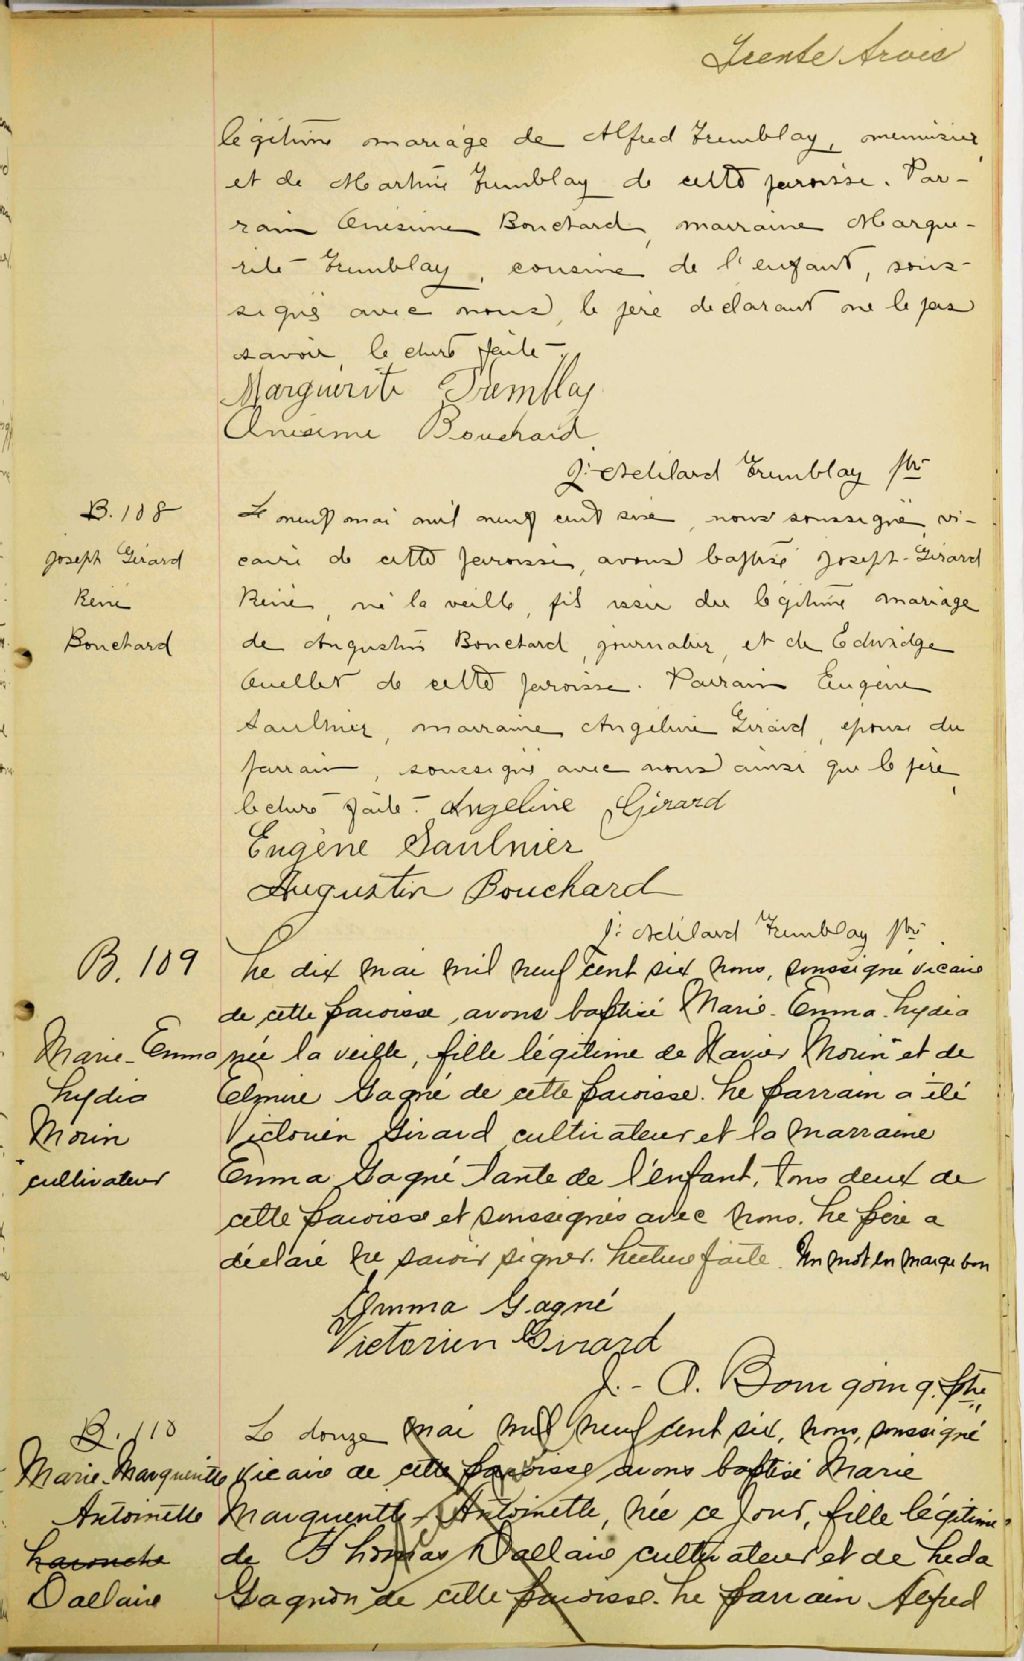 Trente trois
légitime mariage de Alfred Tremblay, menuisier,
et de Martine Tremblay de cette paroisse. Par-
rain Onésime Bouchard, marraine Margue-
rite Tremblay, cousine de l'enfant, sous-
signés avec nous, le père déclarant ne le pas
savoir, lecture faite-.
Marguerite Tremblay
Onésime Bouchard
J: Adélard Tremblay ptre
B. 108
Joseph Girard
René
Bouchard
Le neuf mai mil neuf cent six, nous soussigné, vi-
caire de cette paroisse, avons baptisé Joseph-Girard
René, né la veille, fils issu du légitime mariage
de Augustin Bouchard, journalier, et de Edwidge
Ouellet de cette paroisse. Parrain Eugène
Saulnier, marraine Angéline Girard, épouse du
parrain, soussigné avec nous ainsi que le père,
lecture faite-. Angeline Girard
Eugène Saulnier
Augustin Bouchard
J: Adélard Tremblay ptre
B. 109
Marie-Emma
Lydia
Morin
+ cultivateur
Le dix mai mil neuf cent six nous, soussigné vicaire
de cette paroisse, avons baptisé Marie-Emma-Lydia
née la veille, fille légitime de Xavier Morin + et de
Elmire Gagné de cette paroisse. Le parrain a été
Victorien Girard cultivateur et la marraine
Emma Gagné tante de l'enfant, tous deux de
cette paroisse et soussignés avec nous. Le père a
déclaré ne savoir signer. Lecture faite. Un mot en marge bon
Emma Gagné
Victorien Girard
J.-A. Bourgoing, ptre
B. 110
Marie-Marguerite
Antoinette
Larouche
Dallaire
Le douze mai mil neuf cent six, nous, soussigné
vicaire de cette paroisse avons baptisé Marie
Marguerite-Antoinette, née ce jour, fille légitime
de Thomas Dallaire cultivateur et de Leda
Gagnon de cette paroisse. Le parrain Alfred